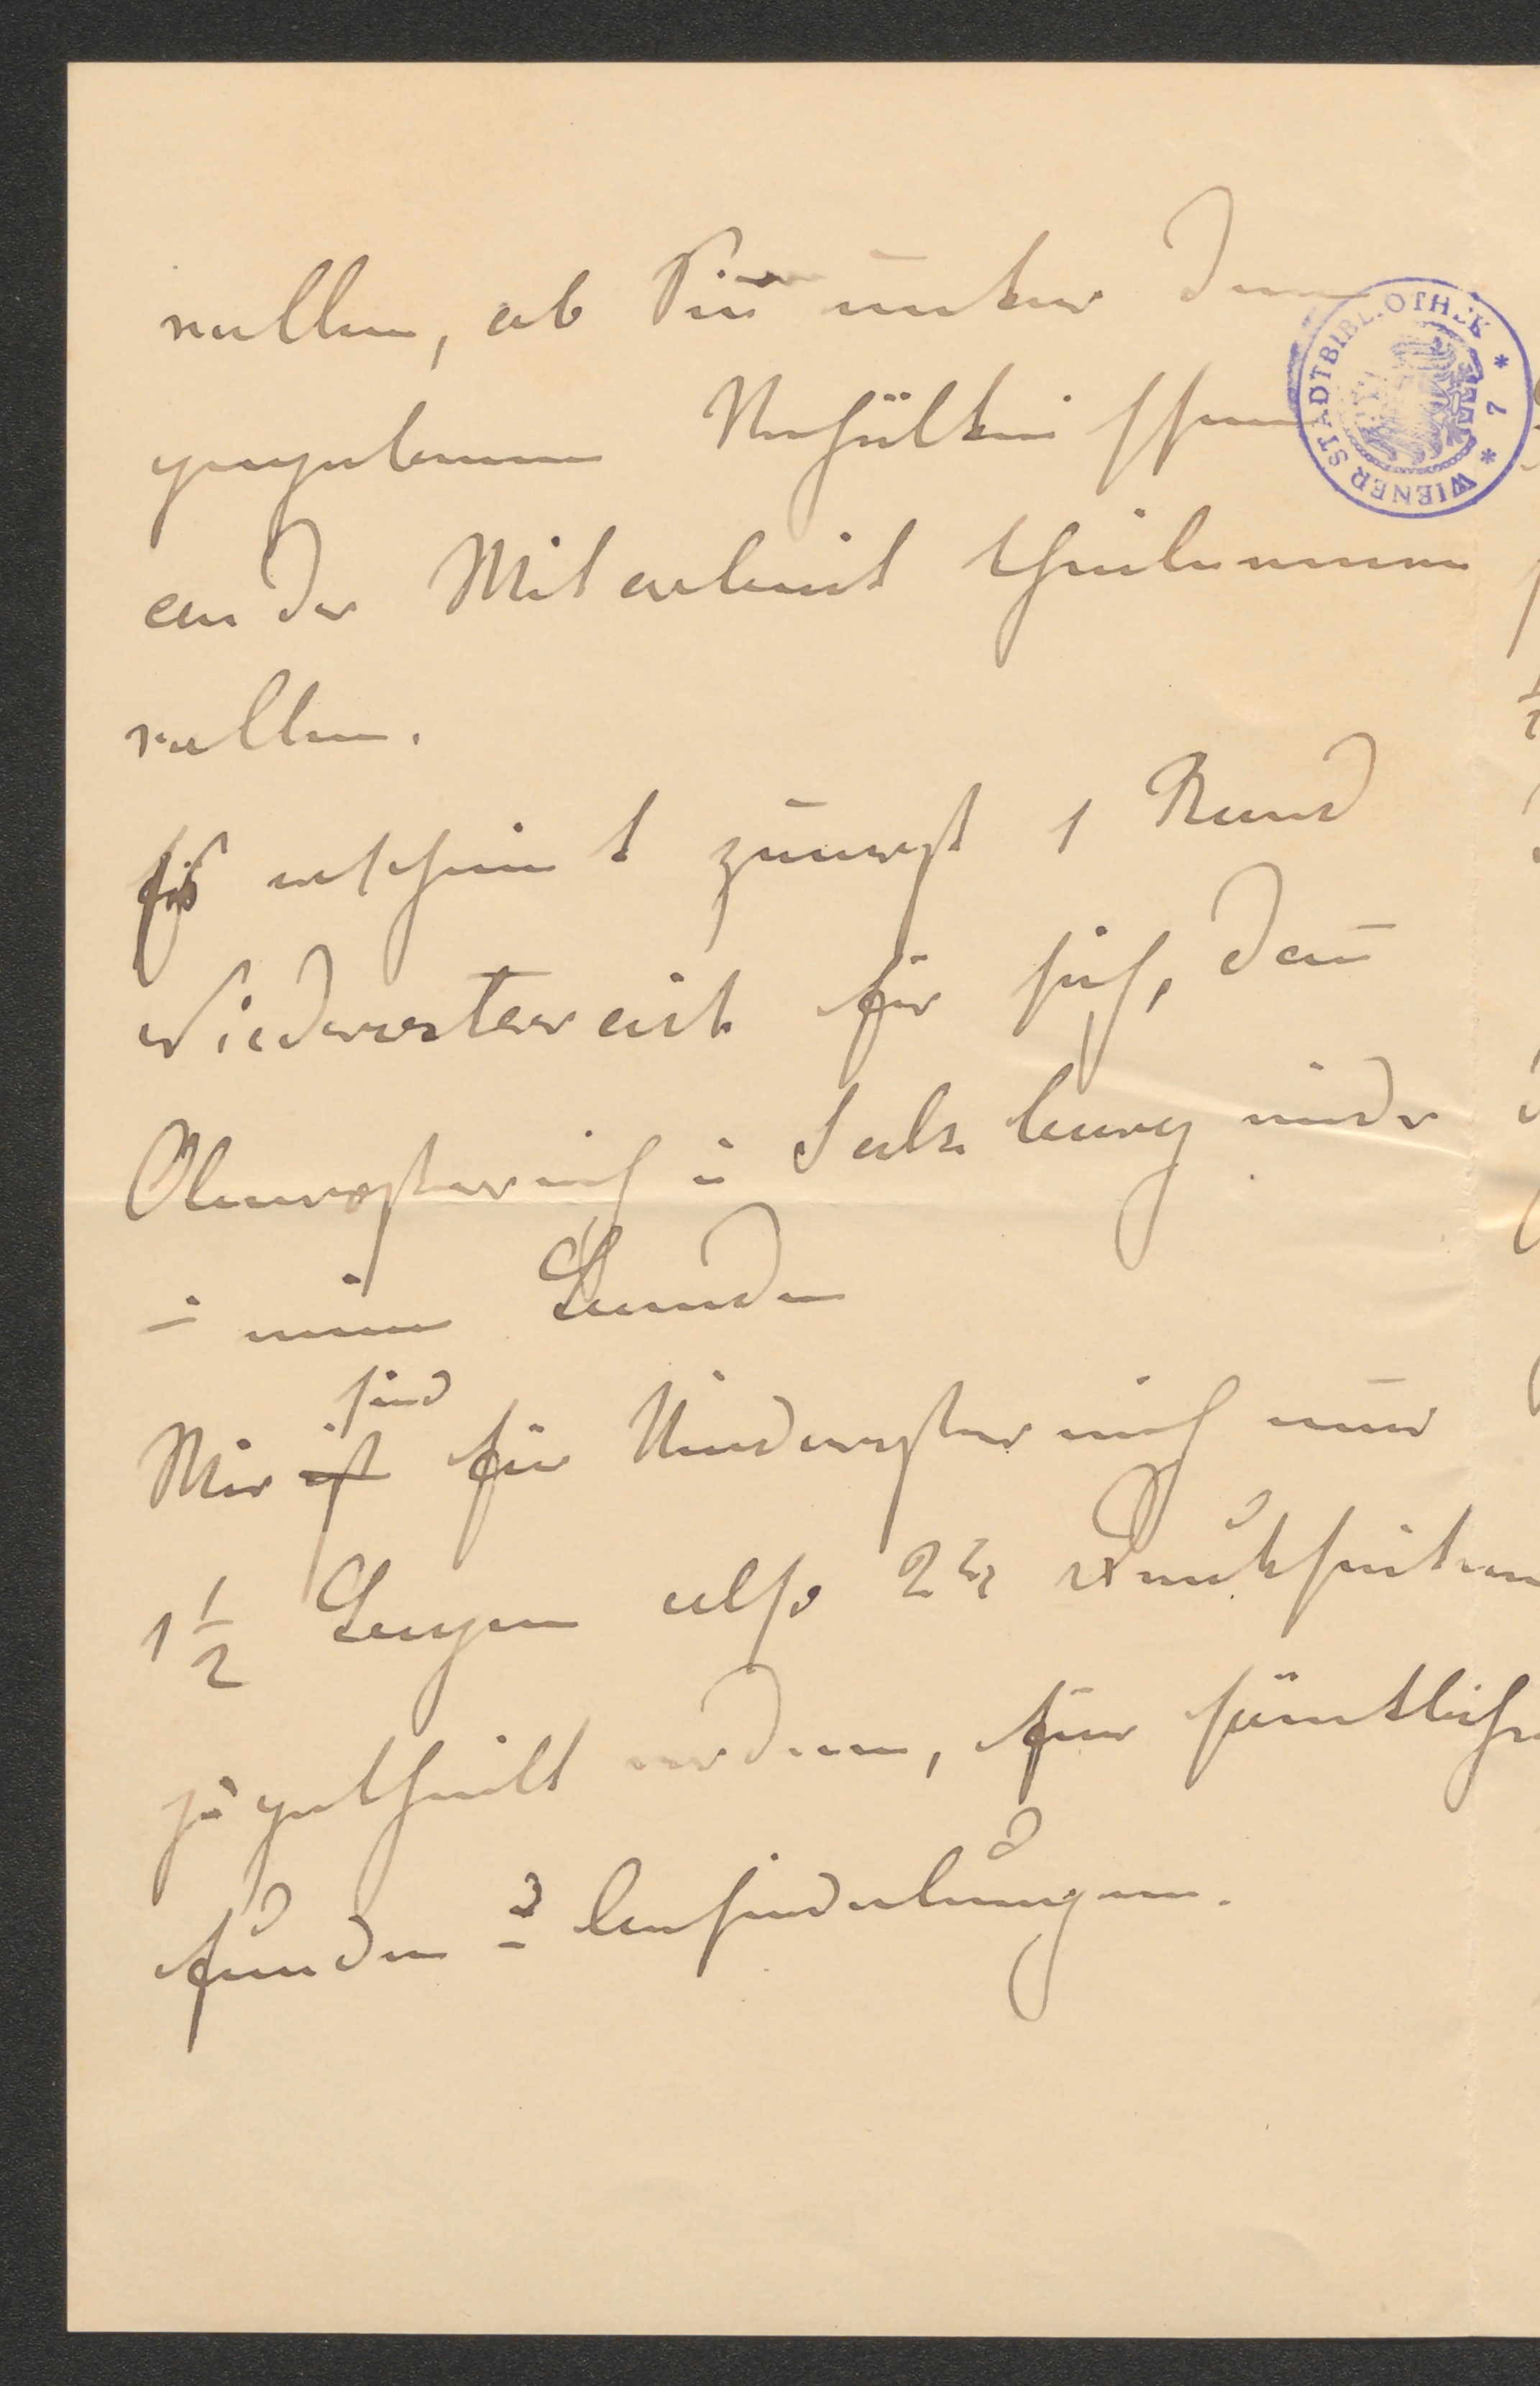 wollen, ob Sie unter den
gegebenen Verhältnissen
an der Mitarbeit theilnemen
wollen.
Es erscheint zuerst 1 Band
Niederosterreich für sich, dan
Oberosterreich u Salzburg wider
in einem Bande
sind
Mir ist für Niederosterreich nur
1½ Bogen also 24 Druckseiten
zugetheilt worden, für sämtliche
funden u behsiedelungen.
WIENER STADTBIBLIOTHEK * 7 *